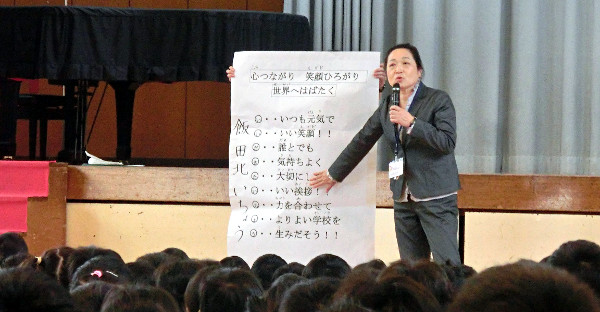 心つながり 笑顔ひろがり
世界へはばたく
飯田北いちょう
・・いつも元気で
・・いい笑顔!!
・・誰とでも
・・気持ちよく
・・大切に
・・いい挨拶!!
・・力を合わせて
・・よりよい学校を
・・生みだそう!!